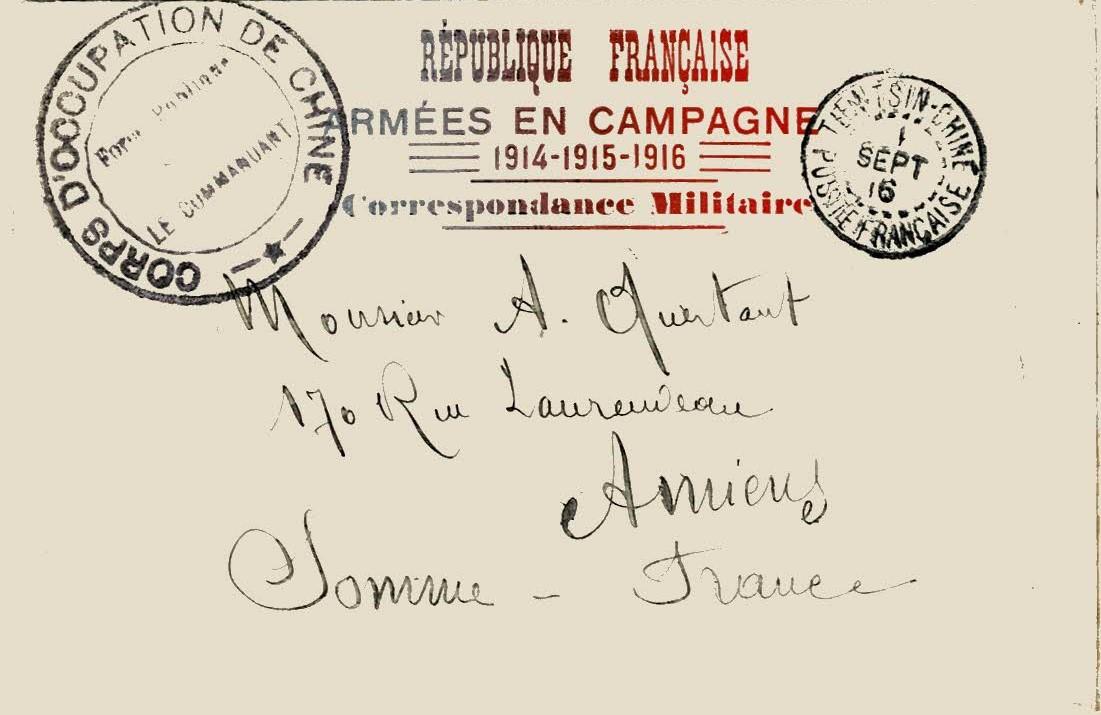 CORPS D'OCCUPATION DE CHINE
Force Publique
LE COMMANDANT
RÉPUBLIQUE FRANÇAISE
ARMÉES EN CAMPAGNE
1914-1915-1916
Correspondance Militaire
TIENTSIN-CHINE
1
SEPT
16
POSTE FRANÇAISE
Monsieur A. Quertant
170 Rue Laurendeau
Amiens
Somme - France